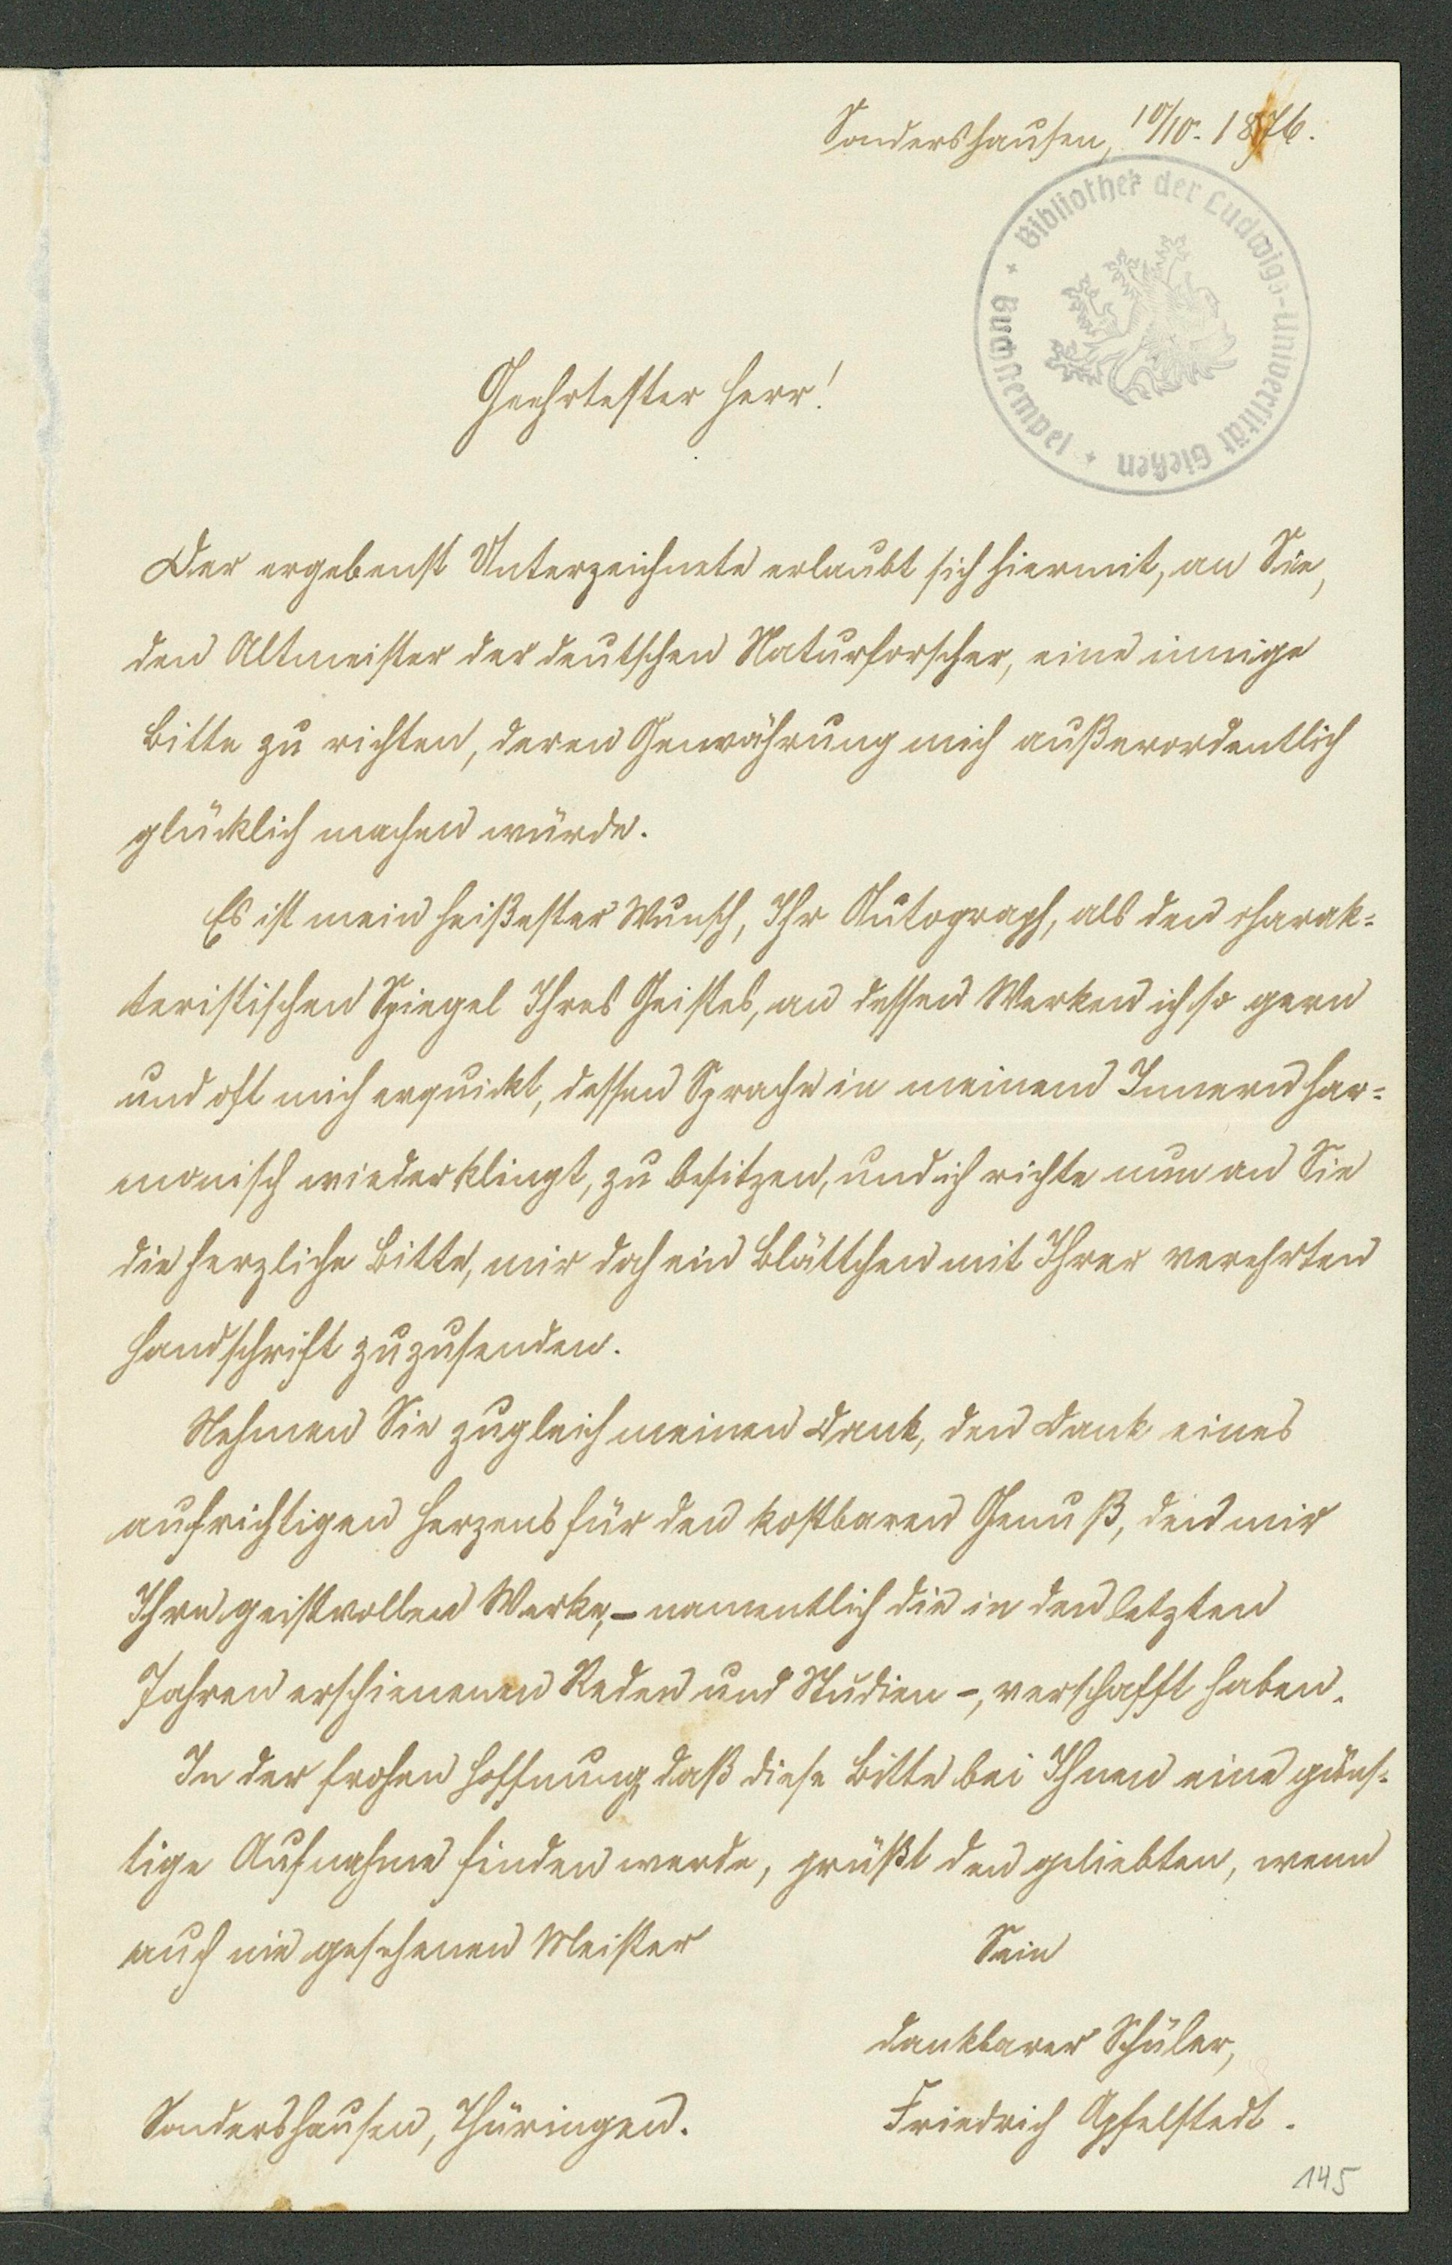 Sondershausen, 10/10. 1876.
Bibliothek der Ludwigs-Universität Gießen + Buchstempel +
Geehrtester Herr!
Der ergebenst Unterzeichnete erlaubt sich hiermit, an Sie,
den Altmeister der deutschen Naturforscher, eine innige
Bitte zu richten, deren Gewährung mich außerordentlich
glücklich machen würde.
Es ist mein heißester Wunsch, Ihr Autograph, als den charak-
teristischen Spiegel Ihres Geistes, an dessen Werken ich so gern
und oft mich erquickt, dessen Sprache in meinem Innern har-
monisch wiederklingt, zu besitzen, und ich richte nun an Sie
die herzliche Bitte, mir doch ein Blättchen mit Ihrer verehrten
Handschrift zuzusenden.
Nehmen Sie zugleich meinen Dank, den Dank eines
aufrichtigen Herzens für den kostbaren Genuß, den mir
Ihre geistvollen Werke, – namentlich die in den letzten
Jahren erschienenen Reden und Studien –, verschafft haben.
In der frohen Hoffnung, daß diese Bitte bei Ihnen eine güns-
tige Aufnahme finden werde, grüßt den geliebten, wenn
auch nie gesehenen Meister
Sein
dankbarer Schüler,
Friedrich Apfelstedt.
Sondershausen, Thüringen.
145